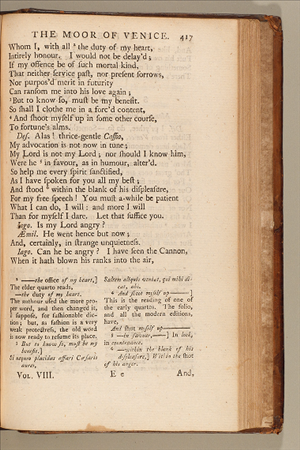 THE MOOR OF VENICE. 417
Whom I, with all ¹ the duty of my heart,
Intirely honour. I would not be delay'd;
If my offence be of such mortal kind,
That neither service past, nor present sorrows,
Nor purpos'd merit in futurity
Can ransom me into his love again;
² But to know so, must be my benefit.
So shall I clothe me in a forc'd content,
And shoot myself up in some other course,
To fortune's alms.
Des. Alas! thrice-gentle Cassio,
My advocation is not now in tune;
My Lord is not my Lord; nor should I know him,
Were he in favour, as in humour, alter'd.
So help me every spirit sanctified,
As I have spoken for you all my best;
And stood within the blank of his displeasure,
For my free speech! You must a-while be patient
What I can do, I will: and more I will
Than for myself I dare. Let that suffice you.
Iago. Is my Lord angry?
Æmil. He went hence but now;
And, certainly, in strange unquietness.
Iago. Can he be angry? I have seen the Cannon,
When it hath blown his ranks into the air,
¹ —the office of my heart,]
The elder quarto reads,
—the duty of my heart.
The authour used the more proper
word, and then changed it,
I suppose, for fashionable diction;
but, as fashion is a very
weak protectress, the old word
is now ready to resume its place.
² But to know so, must be my
benefit.]
Si nequeo placidas affari Cæsaris
aures,
Saltem aliquis veniat, qui mihi dicat,
abi.
And shoot myself up—]
This is the reading of one of
the early quartos. The folio,
and all the modern editions,
have,
And shut myself up—
—in favour,—] In look,
in countenance.
—within the blank of his
displeasure,] Within the shot
of his anger.
Vol. VIII. E e And,